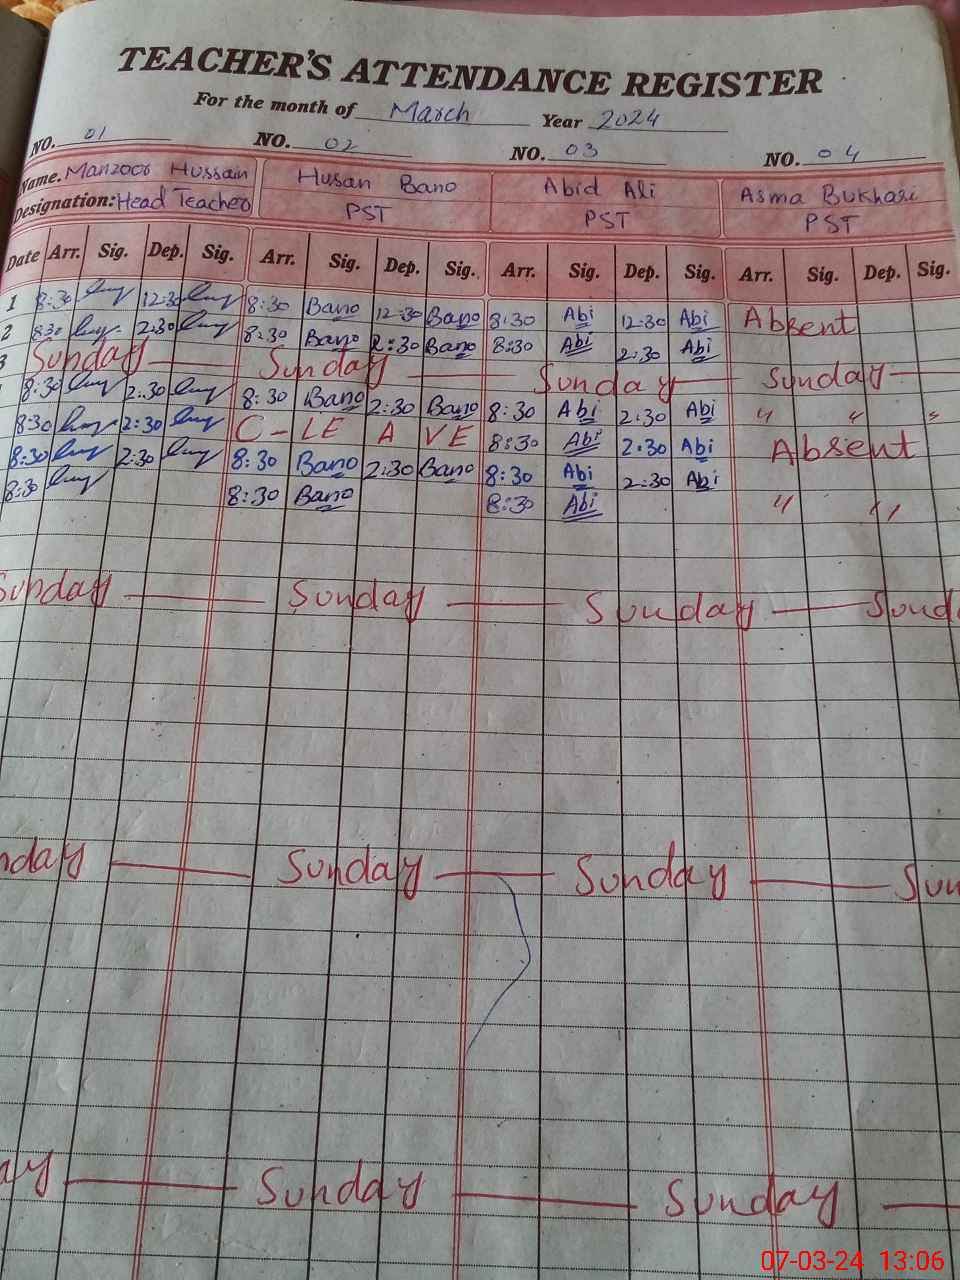 TEACHER'S ATTENDANCE REGISTER
For the month of March Year 2024
NO. 01 NO. 02 NO. 03 NO. 04
Name. Manzoor Hussain Husan Bano Abid Ali Asma Bukhari
Designation: Head Teacher PST PST PST
Date Arr. Sig. Dep. Sig. Arr. Sig. Dep. Sig. Arr. Sig. Dep. Sig. Arr. Sig. Dep. Sig.
1 8:30 12:30 8:30 Bano 12:30 Bano 8:30 Abi 12:30 Abi Absent
2 8:30 2:30 8:30 Bano 2:30 Bano 8:30 Abi 2:30 Abi
3 Sunday Sunday Sunday Sunday
8:30 2:30 8:30 Bano 2:30 Bano 8:30 Abi 2:30 Abi " " "
8:30 2:30 C-LEAVE 8:30 Abi 2:30 Abi Absent
8:30 2:30 8:30 Bano 2:30 Bano 8:30 Abi 2:30 Abi
8:30 8:30 Bano 8:30 Abi " "
Sunday Sunday Sunday Sund
nday Sunday Sunday Sun
ay Sunday Sunday
07-03-24 13:06